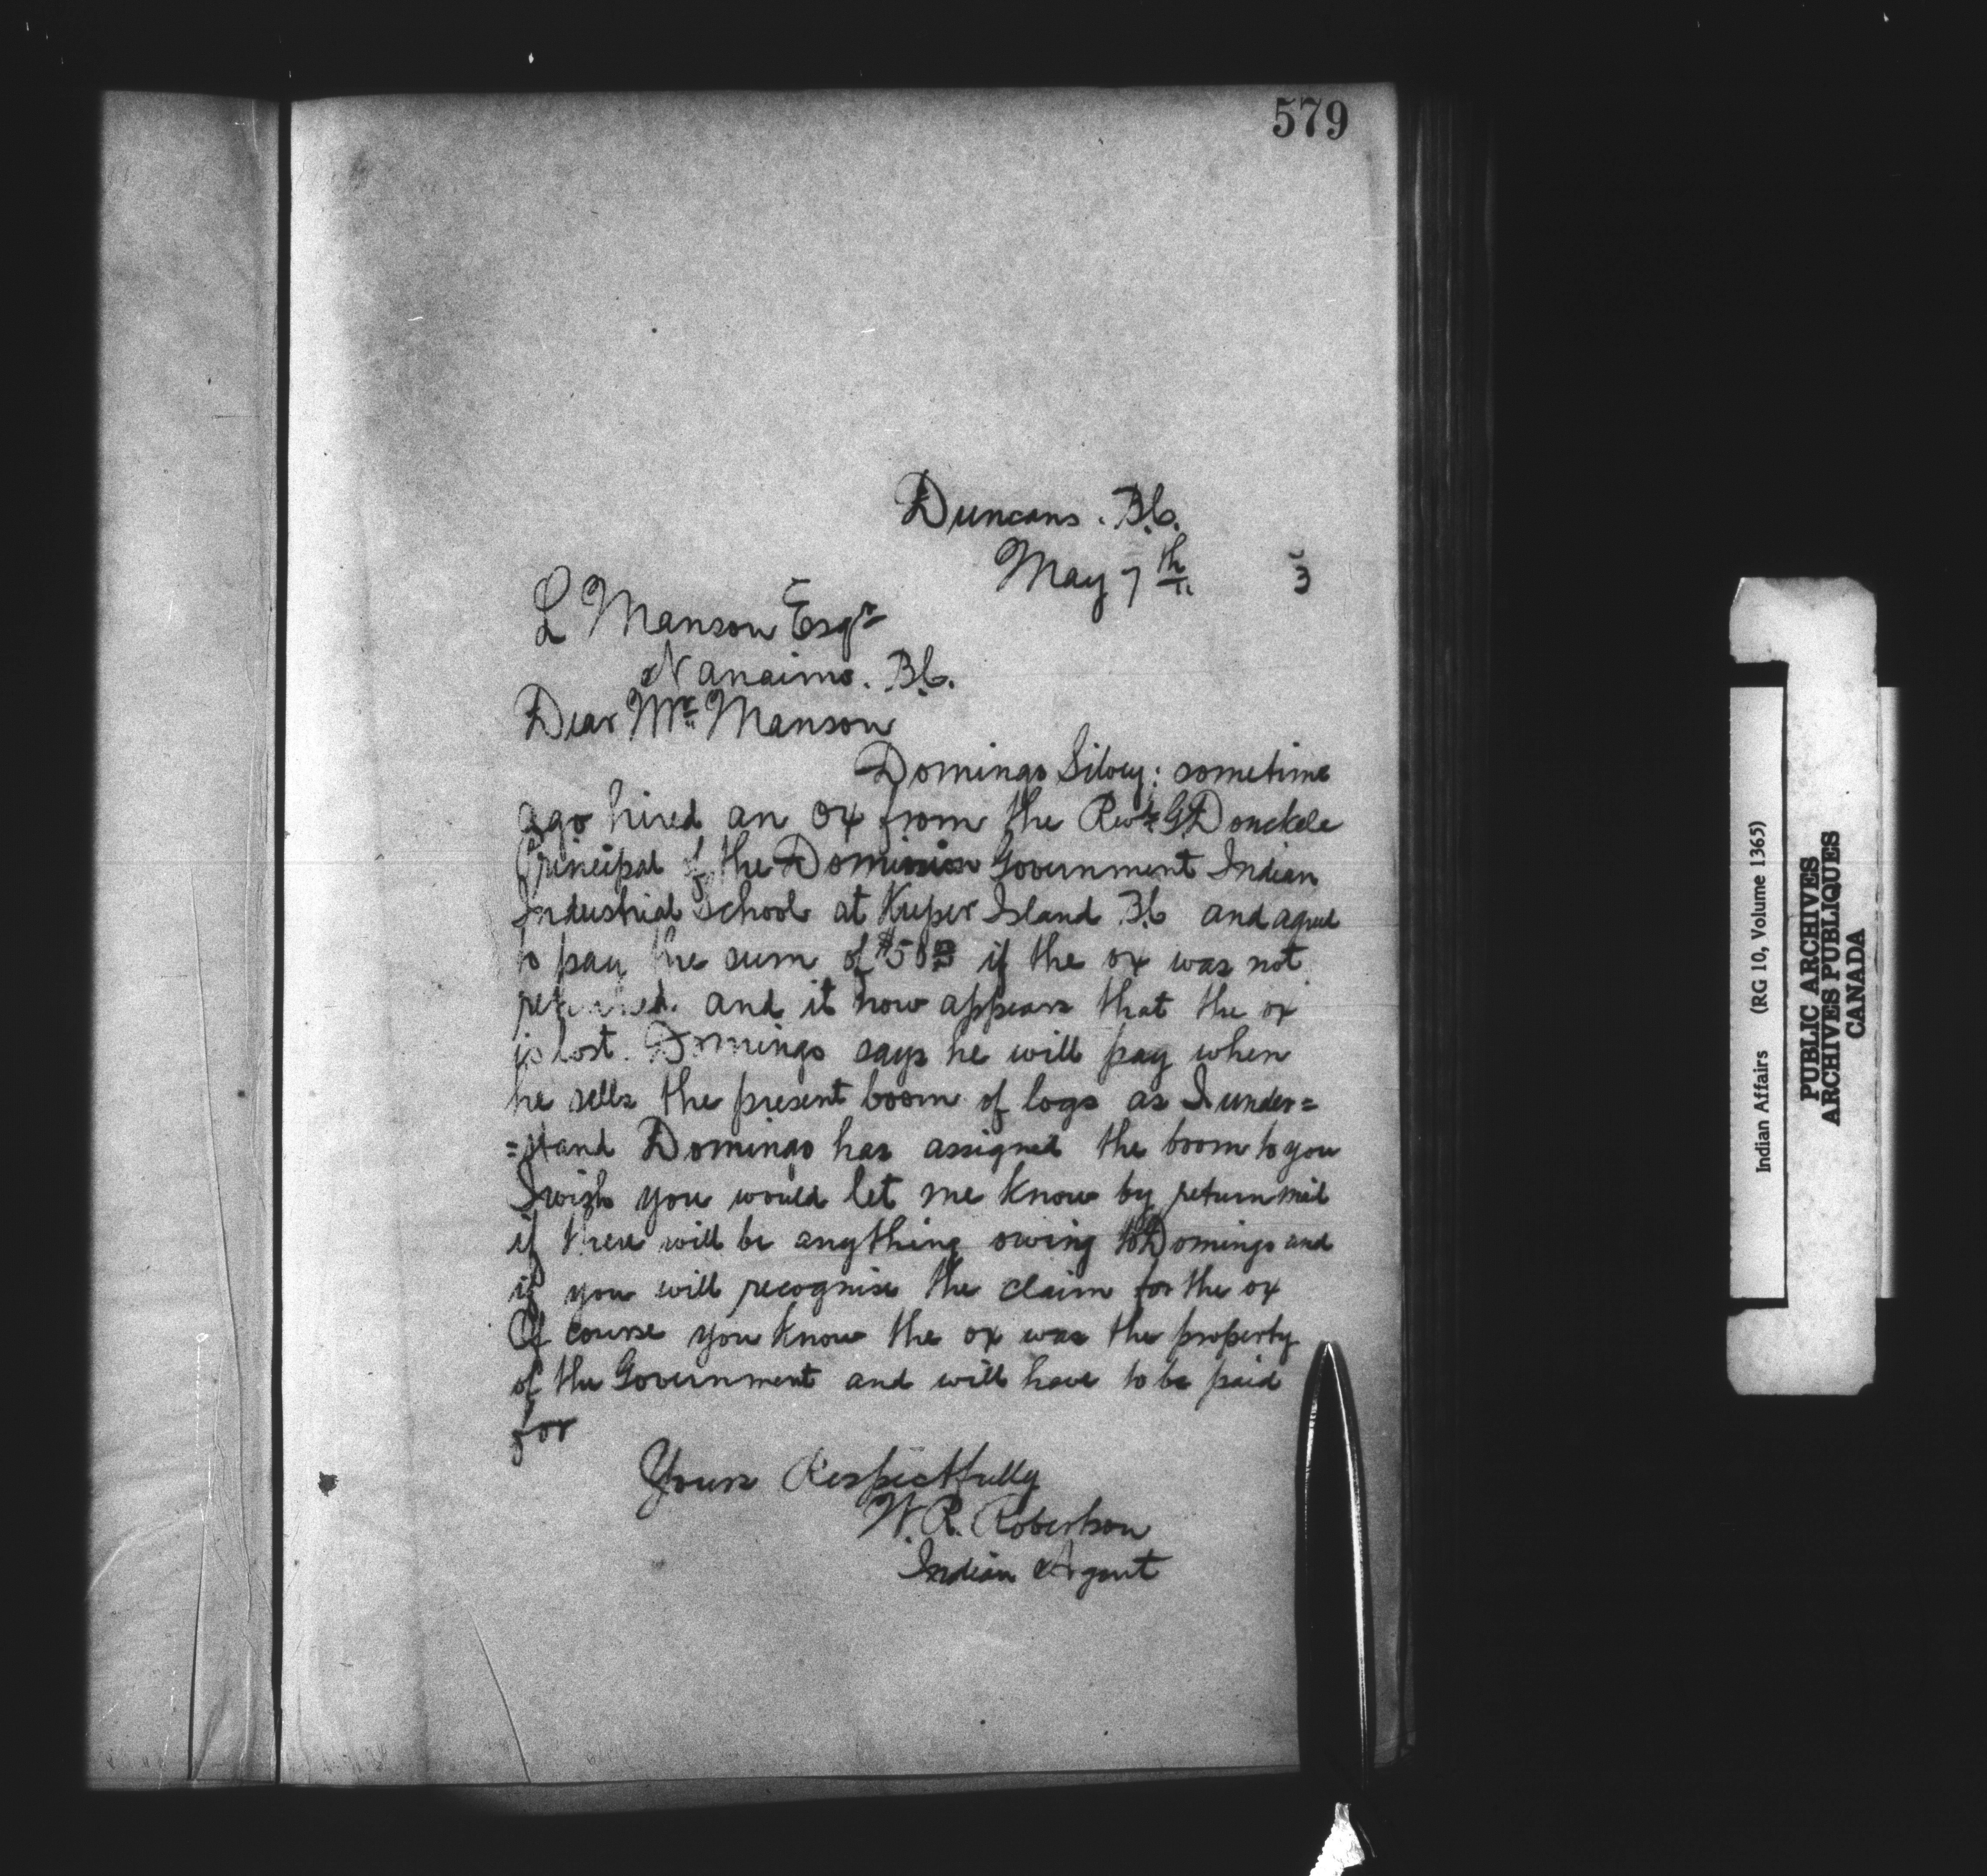 579
Duncans. B.C.
May 7th 3
L Manson Esqr
Nanaimo. B.C.
Dear Mr Manson
Domingo Silvey; sometime
ago hired an ox from the Revd G Donckele
Principal of the Dominion Government Indian
Industrial School at Kuper Island B.C and agreed
to pay the sum of $50 if the ox was not
returned and it now appears that the ox
is lost. Domingo says he will pay when
he sells the present boom of logs as I under=
=stand Domingo has assigned the boom to you
I wish you would let me know by return mail
if there will be anything owing to Domingo and
if you will recognise the claim for the ox
Of course you know the ox was the property
of the Government and will have to be paid
for
Yours Respectfully
W. R. Robertson
Indian Agent
Indian Affairs (RG 10, Volume 1365)
PUBLIC ARCHIVES
ARCHIVES PUBLIQUES
CANADA